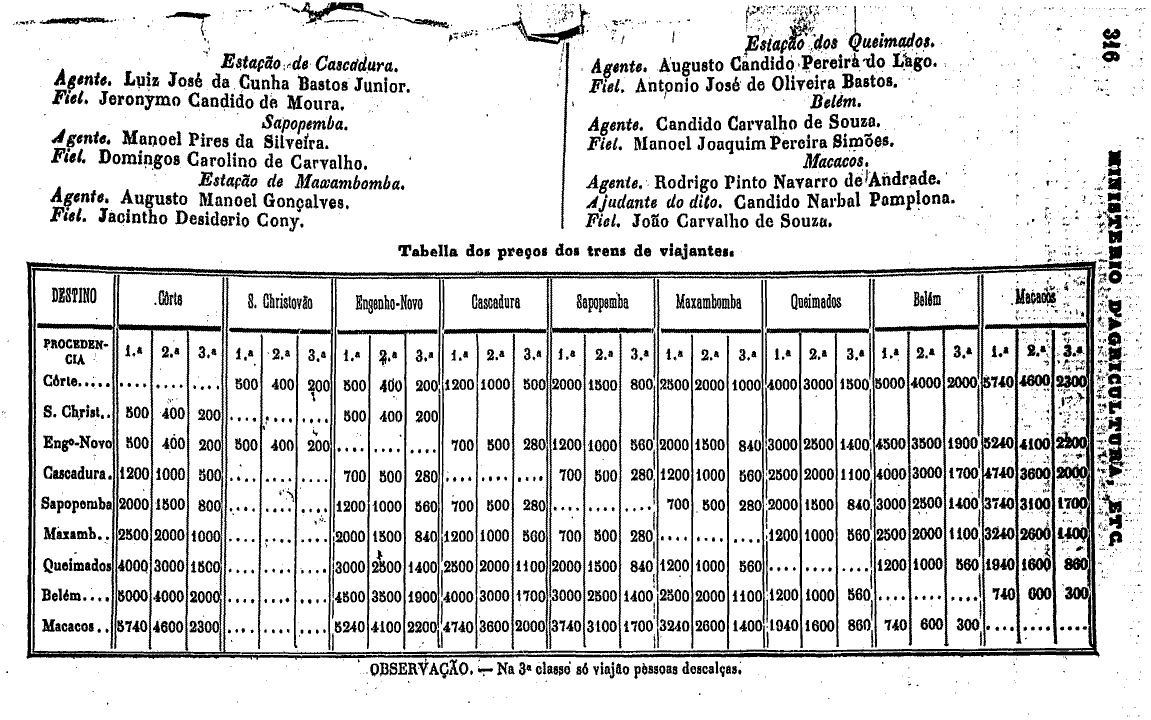 Estação de Cascadura.
Agente. Luiz José da Cunha Bastos Junior.
Fiel. Jeronymo Candido de Moura.
Sapopemba.
Agente. Manoel Pires da Silveira.
Fiel. Domingos Carolino de Carvalho.
Estação de Maxambomba.
Agente. Augusto Manoel Gonçalves.
Fiel. Jacintho Desiderio Cony.
Estação dos Queimados.
Agente. Augusto Candido Pereira do Lago.
Fiel. Antonio José de Oliveira Bastos.
Belém.
Agente. Candido Carvalho de Souza.
Fiel. Manoel Joaquim Pereira Simões.
Macacos.
Agente. Rodrigo Pinto Navarro de Andrade.
Ajudante do dito. Candido Narbal Pamplona.
Fiel. João Carvalho de Souza.
346 MINISTERIO D'AGRICULTURA, ETC.
Tabella dos preços dos trens de viajantes.
DESTINO Côrte S. Christovão Engenho-Novo Cascadura Sapopemba Maxambomba Queimados Belém Macacos
PROCEDEN-
CIA 1.ª 2.ª 3.ª 1.ª 2.ª 3.ª 1.ª 2.ª 3.ª 1.ª 2.ª 3.ª 1.ª 2.ª 3.ª 1.ª 2.ª 3.ª 1.ª 2.ª 3.ª 1.ª 2.ª 3.ª 1.ª 2.ª 3.ª
Côrte..... .... .... .... 500 400 200 500 400 200 1200 1000 500 2000 1500 800 2500 2000 1000 4000 3000 1500 5000 4000 2000 5740 4600 2300
S. Christ.. 500 400 200 .... .... .... 500 400 200
Engº-Novo 500 400 200 500 400 200 .... .... .... 700 500 280 1200 1000 560 2000 1500 840 3000 2500 1400 4500 3500 1900 5240 4100 2200
Cascadura. 1200 1000 500 .... .... .... 700 500 280 .... .... .... 700 500 280 1200 1000 560 2500 2000 1100 4000 3000 1700 4740 3600 2000
Sapopemba 2000 1500 800 .... .... .... 1200 1000 560 700 500 280 .... .... .... 700 500 280 2000 1500 840 3000 2500 1400 3740 3100 1700
Maxamb.. 2500 2000 1000 .... .... .... 2000 1500 840 1200 1000 560 700 500 280 .... .... .... 1200 1000 560 2500 2000 1100 3240 2600 1400
Queimados 4000 3000 1500 .... .... .... 3000 2500 1400 2500 2000 1100 2000 1500 840 1200 1000 560 .... .... .... 1200 1000 560 1940 1600 860
Belém.... 5000 4000 2000 .... .... .... 4500 3500 1900 4000 3000 1700 3000 2500 1400 2500 2000 1100 1200 1000 560 .... .... .... 740 600 300
Macacos.. 5740 4600 2300 .... .... .... 5240 4100 2200 4740 3600 2000 3740 3100 1700 3240 2600 1400 1940 1600 860 740 600 300 .... .... ....
OBSERVAÇÃO. — Na 3ª classe só viajão pessoas descalças.